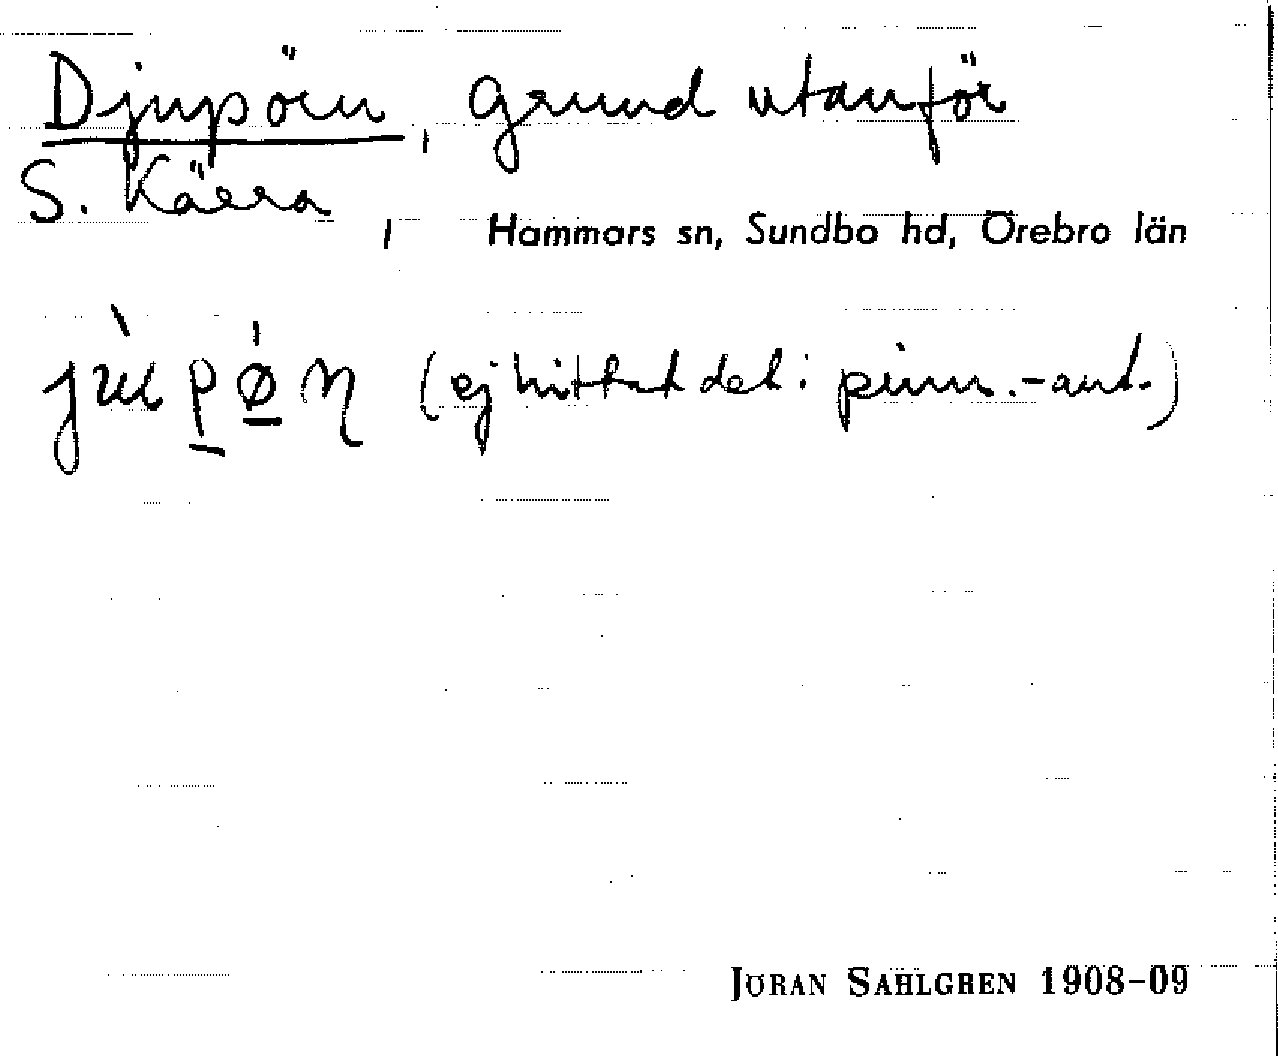 Djupörn, Grund utanför
S. Kärra, Hammars sn, Sundbo hd, Örebro län
(ej hittat det i pinn.-ant.)
JÖRAN SAHLGREN 1908-09